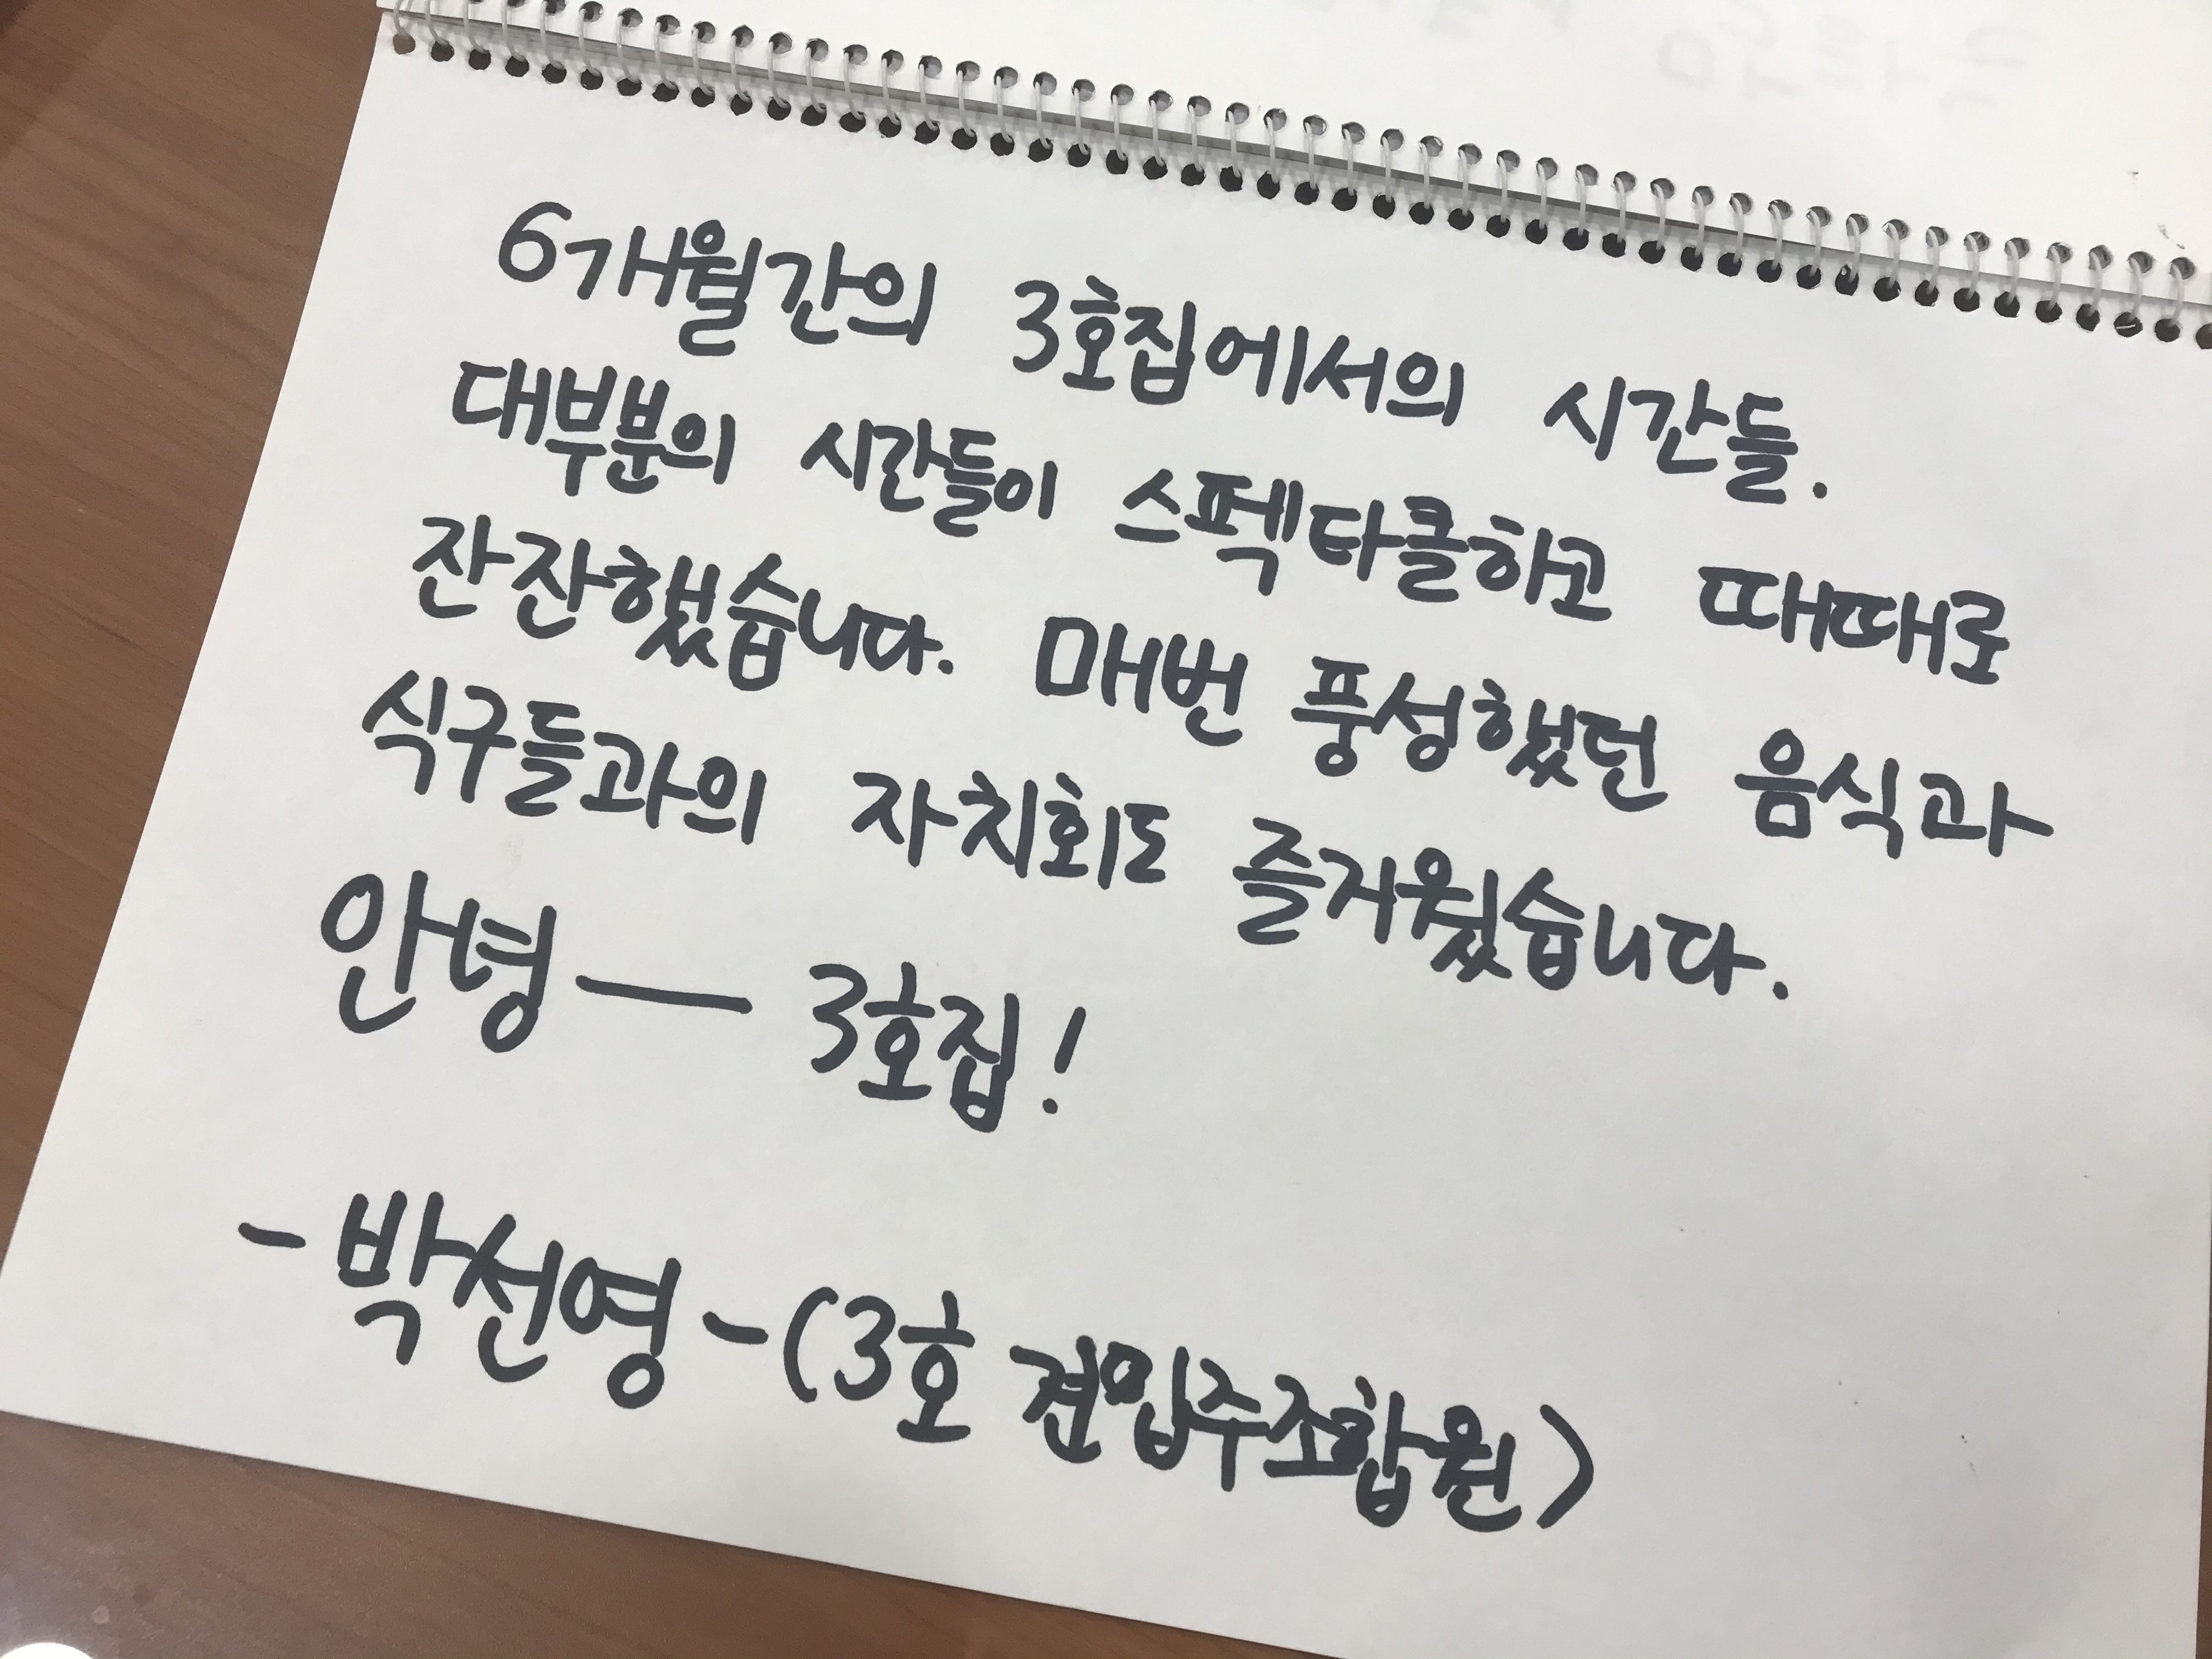 6개월간의 3호집에서의 시간들.
대부분의 시간들이 스펙타클하고 때때로
잔잔했습니다. 매번 풍성했던 음식과
식구들과의 자치회도 즐거웠습니다.
안녕— 3호집!
- 박선영 - (3호 전입주조합원)